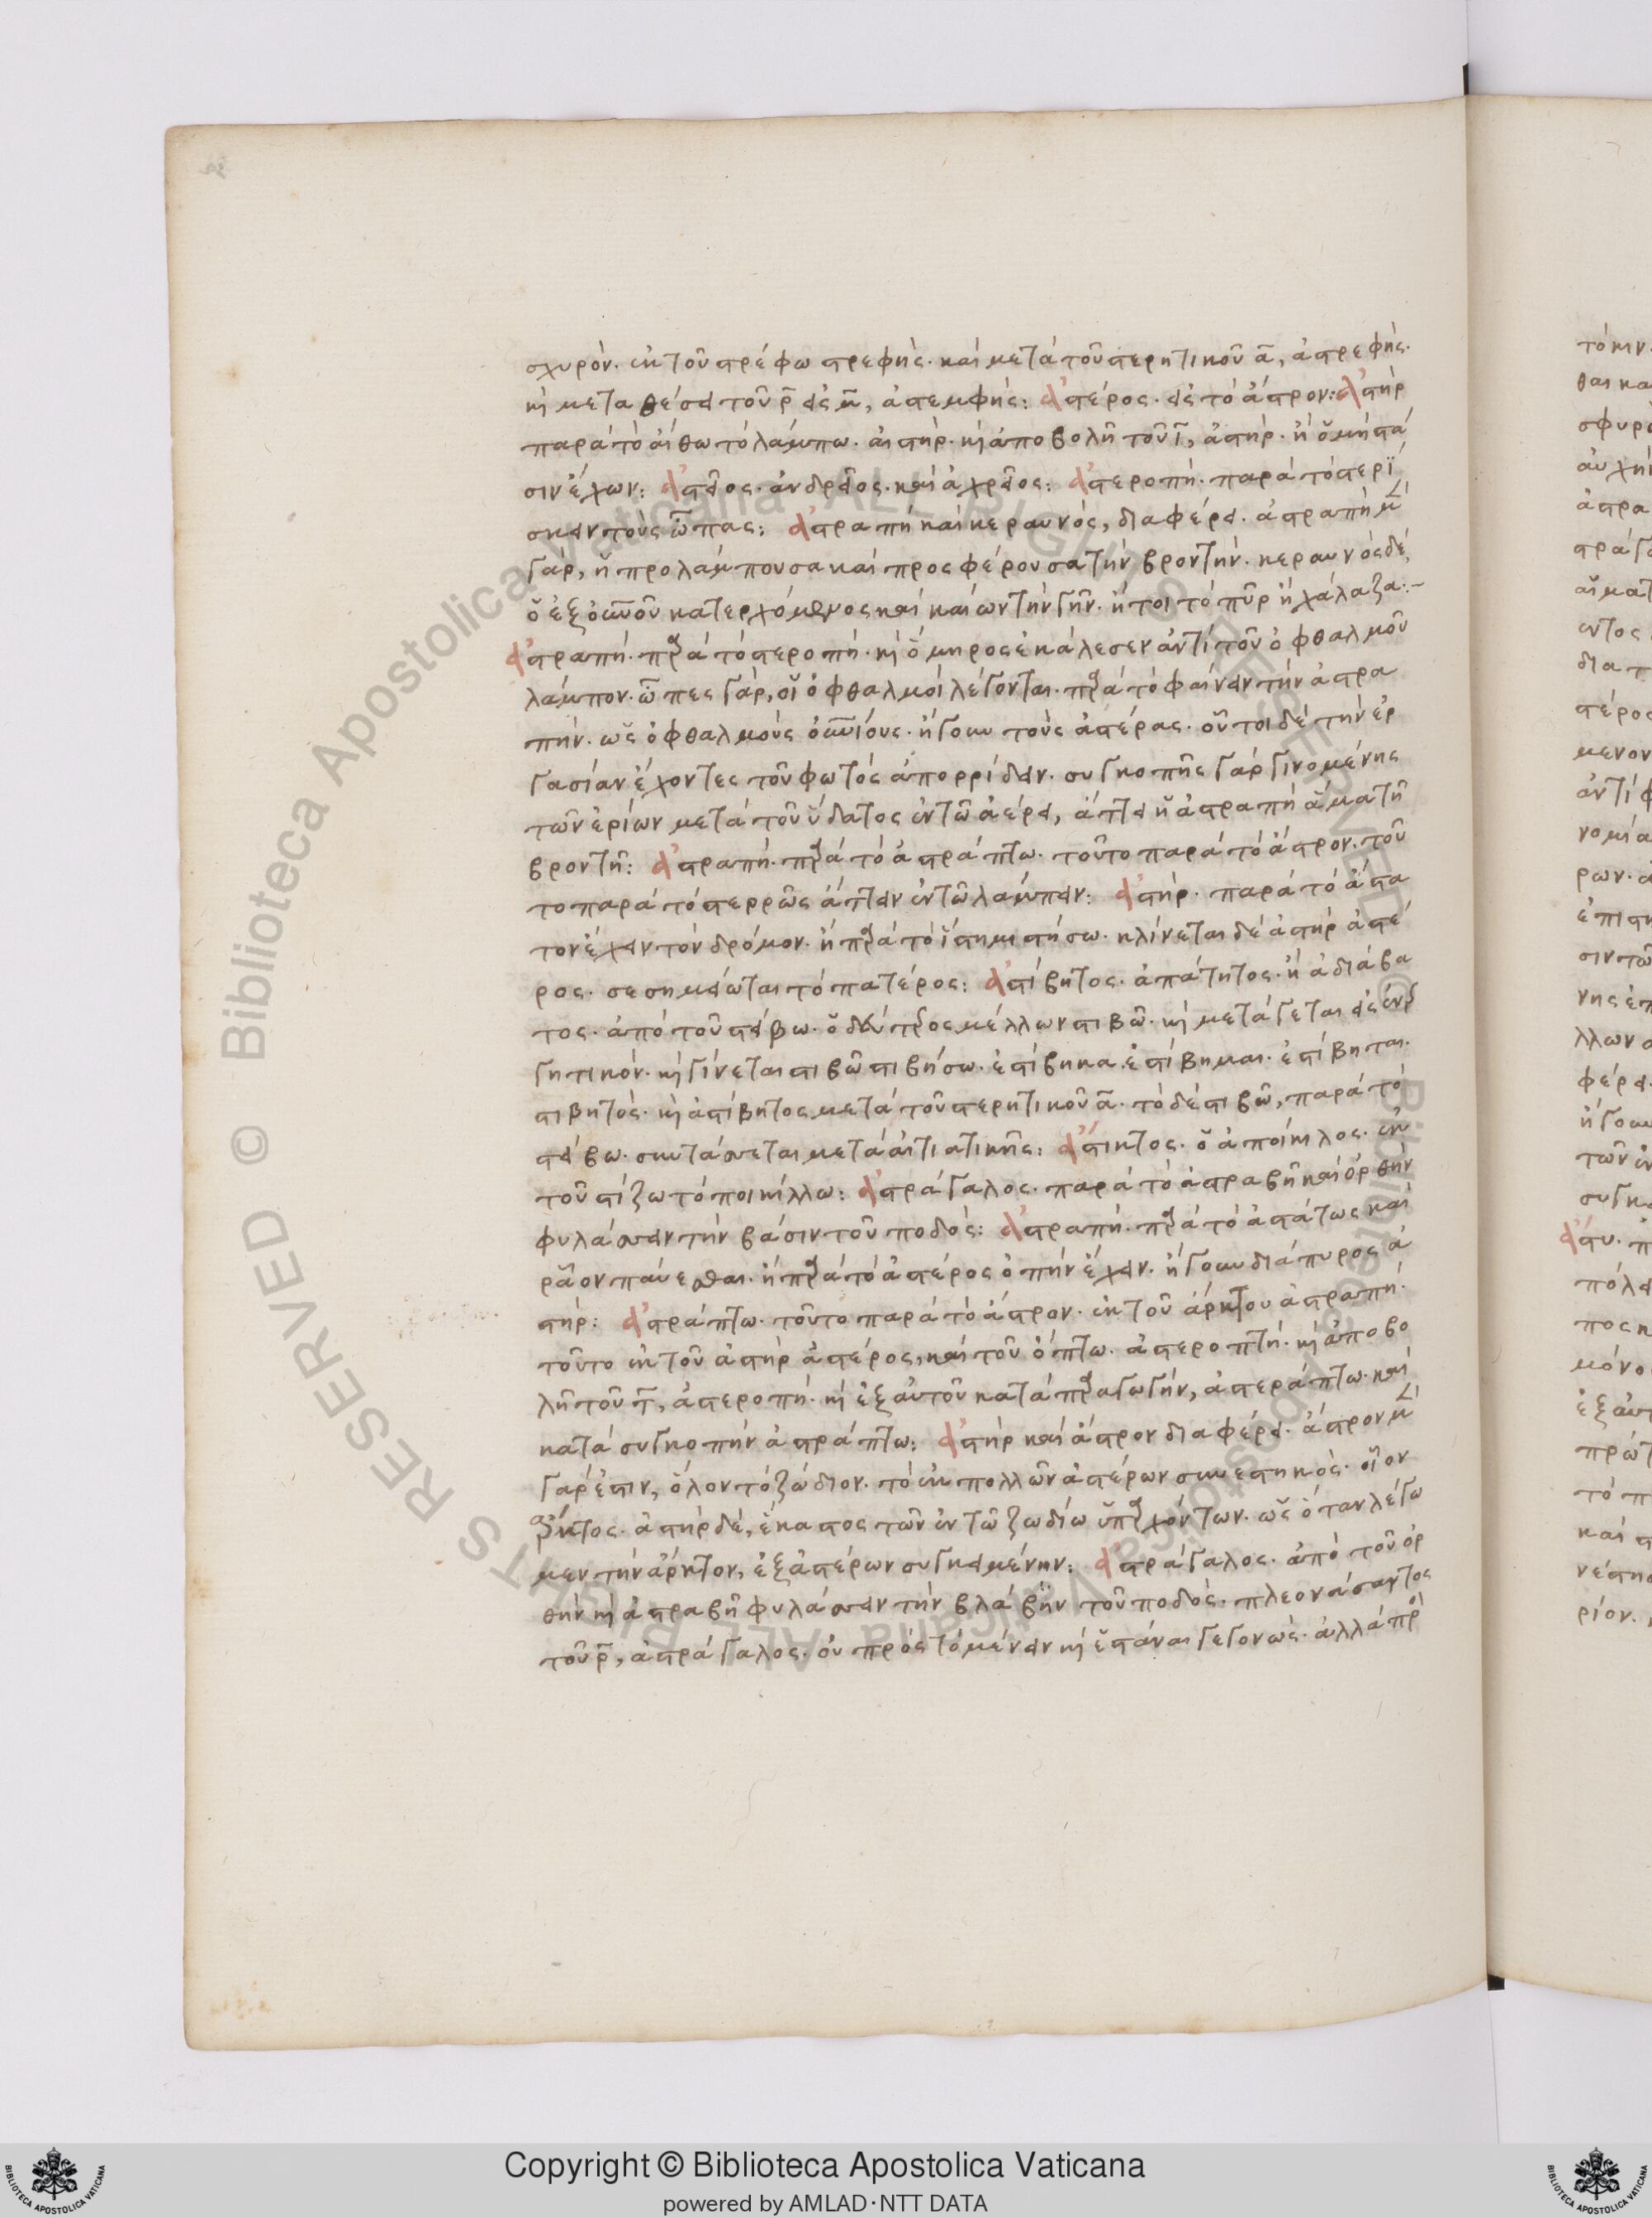 σχυρόν. ἐκ τοῦ στρέφω στρεφής. καὶ μετὰ τοῦ στερητικοῦ ᾱ, ἀστρεφής.
κὶ μεταθέσει τοῦ ρ̄ εἰς μ̄, ἀστεμφής: ἀστέρος. εἰς τὸ ἄστρον: ἀστὴρ
παρὰ τὸ αἴθω τὸ λάμπω. αἰστήρ. κὶ ἀποβολῆ τοῦ ῑ, ἀστήρ. ἢ ὁ μὴ στά
σιν ἔχων: ἀστεῖος. ἀνδρεῖος. καὶ ἀχρεῖος: ἀστεροπή. παρὰ τὸ στερΐ
σκειν τοὺς ὦπας: ἀστραπὴ καὶ κεραυνός, διαφέρει. ἀστραπὴ μ̄
γάρ, ἡ προλάμπουσα καὶ προσφέρουσα τὴν βροντήν. κεραυνὸς δέ,
ὁ ἐξ οὐνοῦ κατερχόμενος καὶ καίων τὴν γῆν. ἤτοι τὸ πῦρ ἢ χάλαζα:-
ἀστραπή. πρὰ τὸ στεροπή. κὶ ὅμηρος ἐκάλεσεν ἀντὶ τοῦ ὀφθαλμοῦ
λάμπον. ὦπες γάρ, οἱ ὀφθαλμοὶ λέγονται. πρὰ τὸ φαίνειν τὴν ἀστρα
πήν. ὡς ὀφθαλμοὺς οὐνίους. ἤγουν τοὺς ἀστέρας. οὗτοι δὲ τὴν ἐρ
γασίαν ἔχοντες τοῦ φωτὸς ἀπορρίδειν. συγκοπῆς γὰρ γινομένης
τῶν ἐρίων μετὰ τοῦ ὕδατος ἐν τῶ ἀέρει, ἅπτει ἡ ἀστραπὴ ἅμα τῆ
βροντῆ: ἀστραπή. πρὰ τὸ ἀστράπτω. τοῦτο παρὰ τὸ ἄστρον. τοῦ
το παρὰ τὸ στερρῶς ἅπτειν ἐν τῶ λάμπειν: ἀστήρ. παρὰ τὸ ἄστα
τον ἔχειν τὸν δρόμον. ἢ πρὰ τὸ ἵστημι στήσω. κλίνεται δὲ ἀστὴρ ἀστέ
ρος. σεσημείωται τὸ πατέρος: ἀστίβητος. ἀπάτητος. ἢ ἀδιάβα
τος. ἀπὸ τοῦ στείβω. ὁ δεύτρος μέλλων στιβῶ. κὶ μετάγεται εἰς ἐνερ
γητικόν. κὶ γίνεται στιβῶ στιβήσω. ἐστίβηκα. ἐστίβημαι. ἐστίβηται.
στιβητός. κὶ ἀστίβητος μετὰ τοῦ στερητικοῦ ᾱ. τὸ δὲ στιβῶ, παρὰ τὸ
στείβω. συντάσσεται μετὰ αἰτιατικῆς: ἄστικτος. ὁ ἀποίκιλος. ἐκ
τοῦ στίζω τὸ ποικίλλω: ἀστράγαλος. παρὰ τὸ ἀστραβῆ καὶ ὀρθὴν
φυλάσσειν τὴν βάσιν τοῦ ποδός: ἀστραπή. πρὰ τὸ ἀστάτως καὶ
ρᾶον παύεσθαι. ἢ πρὰ τὸ ἀστέρος ὀπὴν ἔχειν. ἤγουν διάπυρος ἀ
στήρ: ἀστράπτω. τοῦτο παρὰ τὸ ἄστρον. ἐκ τοῦ ἄρκτου ἀστραπή.
τοῦτο ἐκ τοῦ ἀστὴρ ἀστέρος, καὶ τοῦ ὄπτω. ἀστεροπτή. κὶ ἀποβο
λῆ τοῦ τ̄, ἀστεροπή. κὶ ἐξ αὐτοῦ κατὰ πραγωγήν, ἀστεράπτω. καὶ
κατὰ συγκοπὴν ἀστράπτω: ἀστὴρ καὶ ἄστρον διαφέρει. ἄστρον μ̄
γάρ ἐστιν, ὅλον τὸ ζώδιον. τὸ ἐκ πολλῶν ἀστέρων συνεστηκός. οἷον
ἄρκτος. ἀστὴρ δέ, ἕκαστος τῶν ἐν τῶ ζωδίω ὑπρχόντων. ὡς ὅταν λέγω
μεν τὴν ἄρκτον, ἐξ ἀστέρων συγκειμένην: ἀστράγαλος. ἀπὸ τοῦ ὀρ
θὴν κὶ ἀστραβῆ φυλάσσειν τὴν βλάβην τοῦ ποδός. πλεονάσαντος
τοῦ ρ̄, ἀστράγαλος. οὐ πρὸς τὸ μένειν κὶ ἑστάναι γεγονώς. ἀλλὰ πρὸ